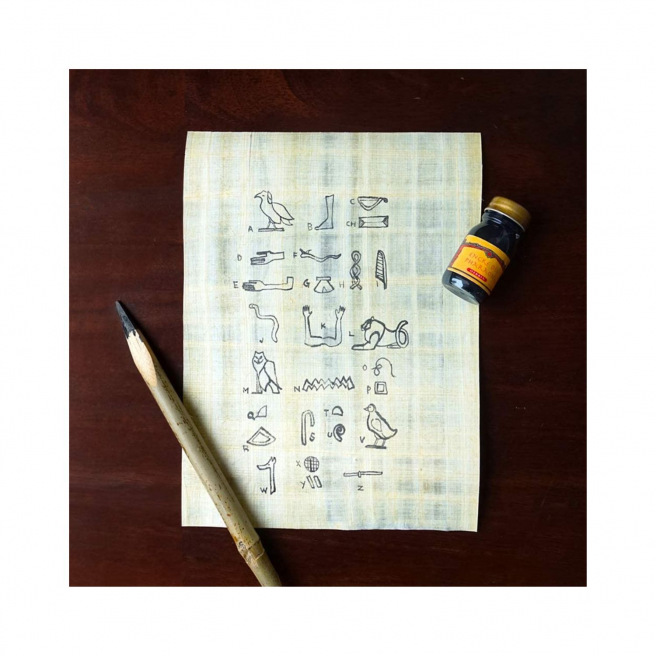 A B C
CH
D F
E G H I
J K L
M N O
P
Q T
R S U V
W X
Y Z